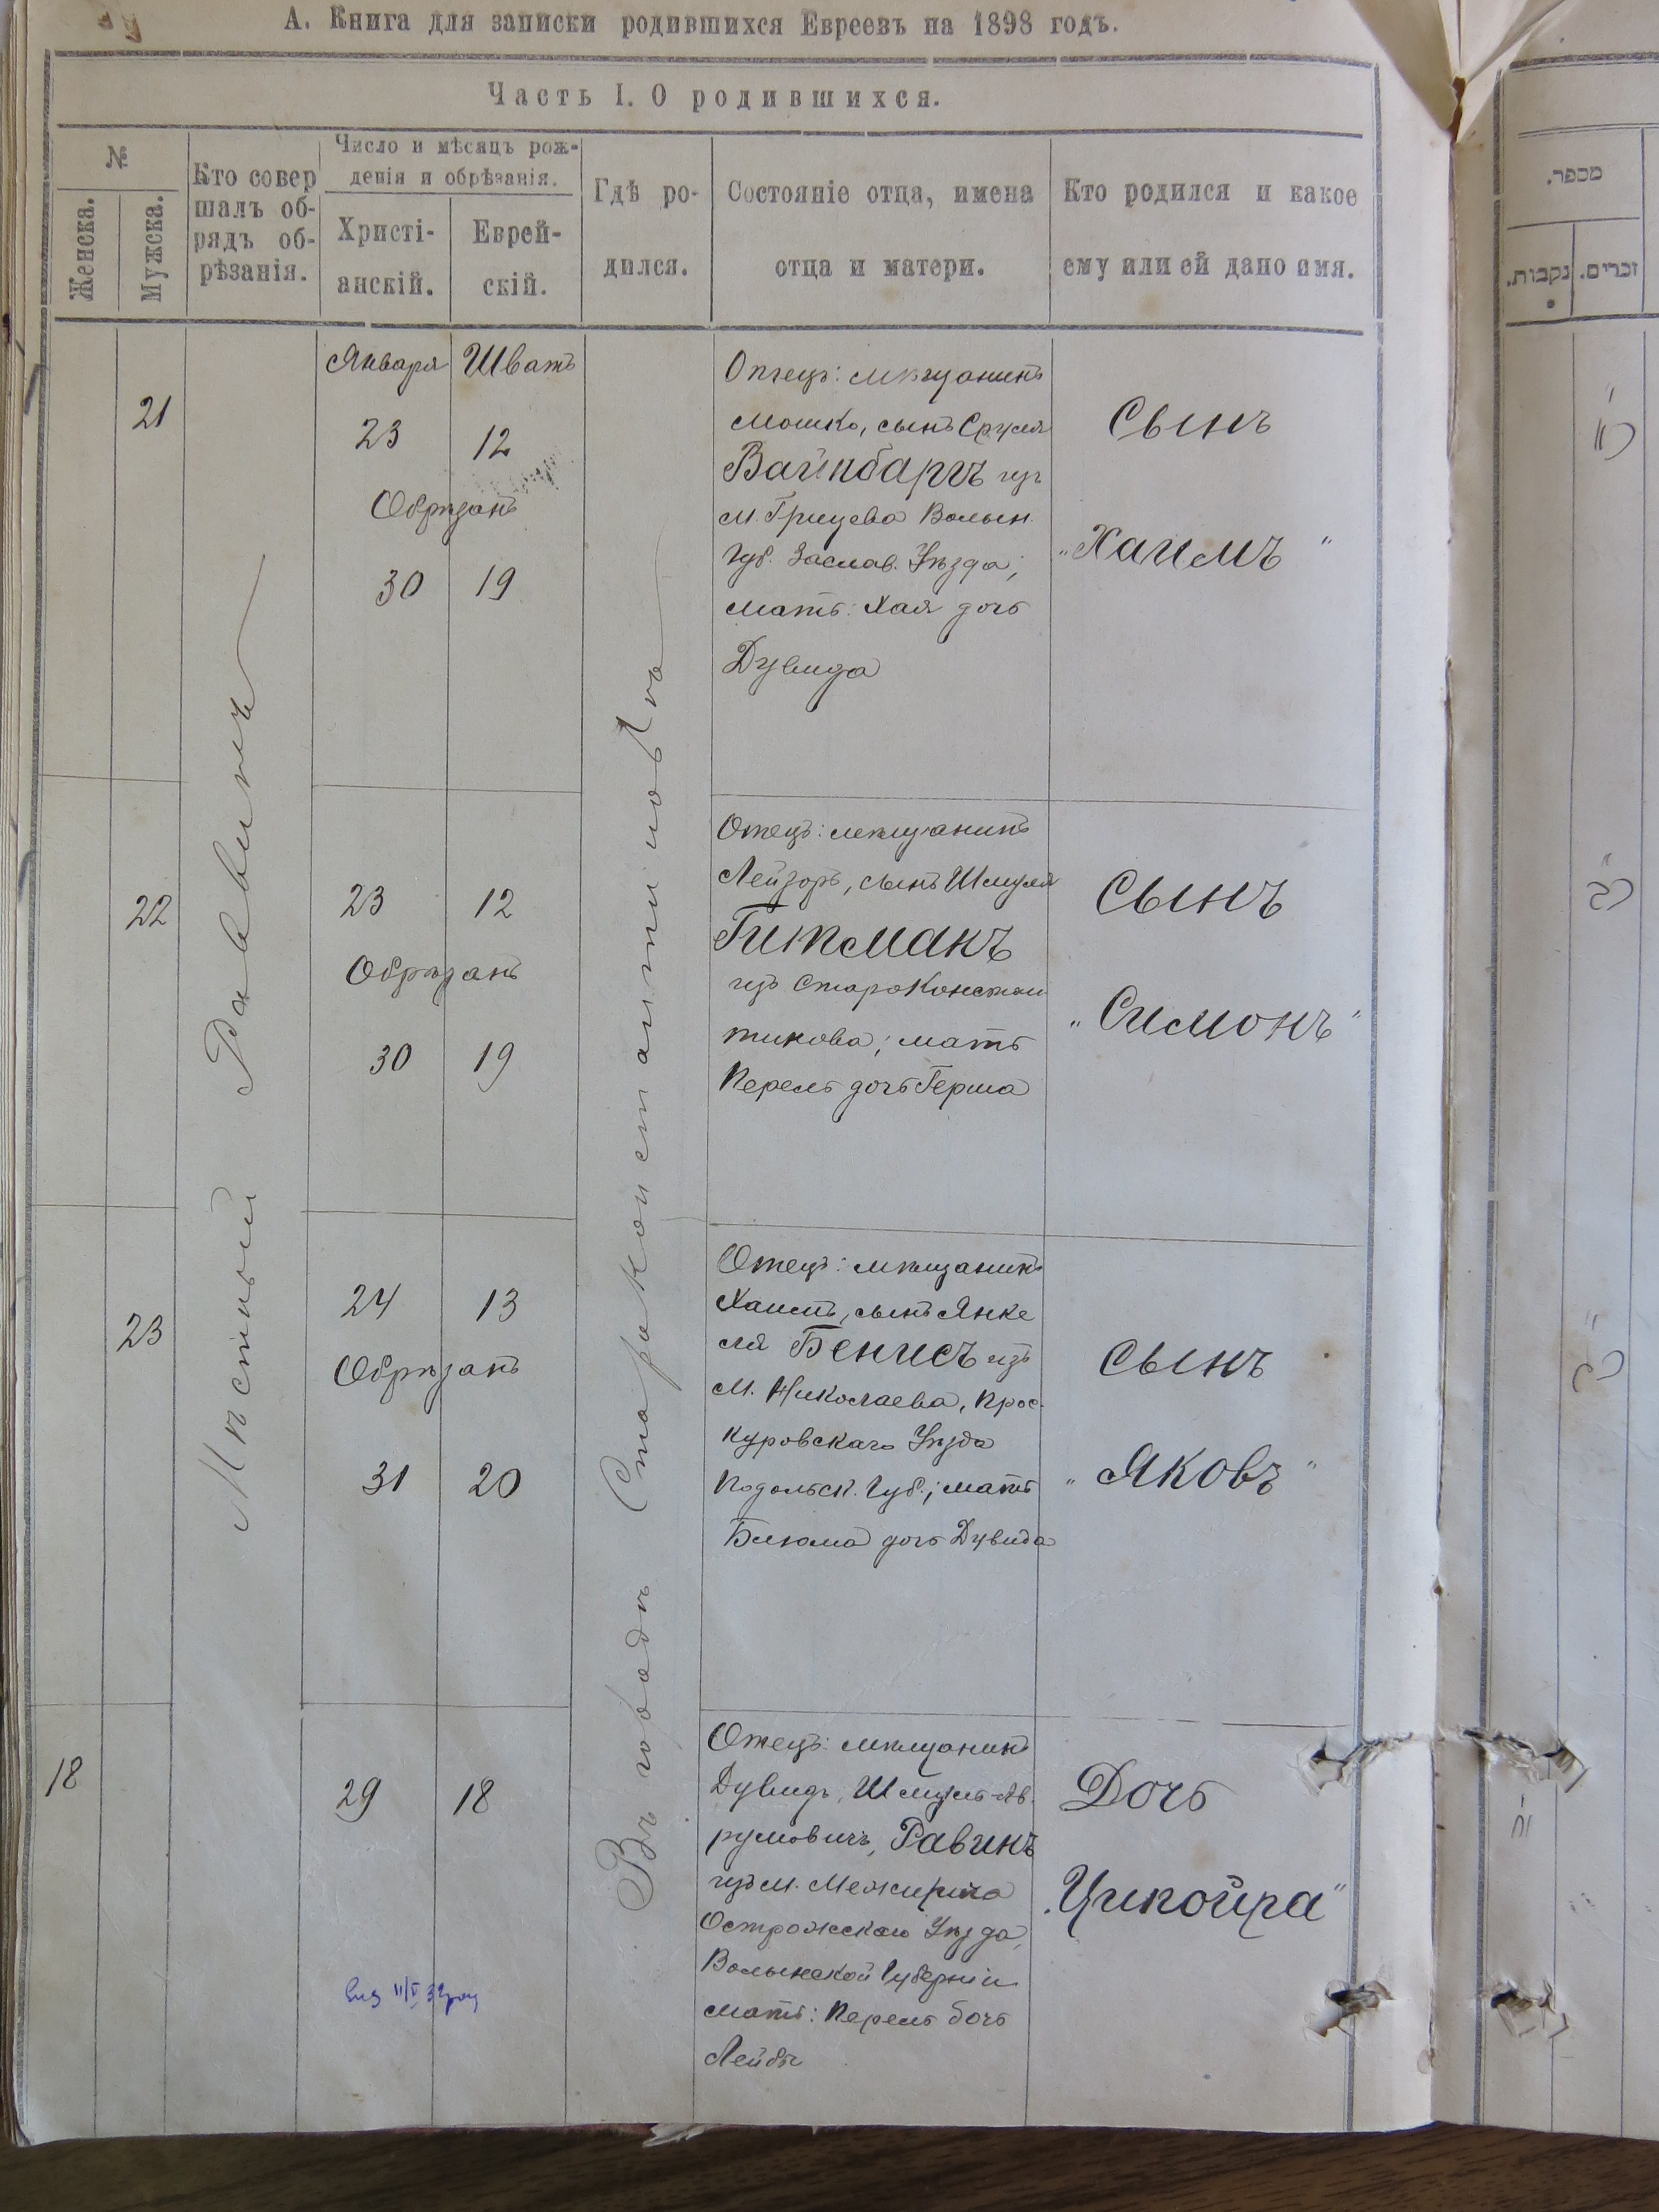 А. Книга для записки родившихся Евреевъ на 1898 годъ.
Часть I. О родившихся.
№
Женска.
Мужска.
Кто совер
шалъ об-
рядъ об-
рѣзанія.
Число и мѣсяцъ рож-
денія и обрѣзанія.
Христі-
анскій.
Еврей-
скій.
Гдѣ ро-
дился.
Состояніе отца, имена
отца и матери.
Кто родился и какое
ему или ей дано имя.
Мѣстный Раввинъ
Въ городѣ Староконстантиновѣ
21
Января Шватъ
23 12
Обрѣзанъ
30 19
Отецъ: мѣщанинъ
Мошко, сынъ Сруля
Вайнбаргъ изъ
м. Грицева Волын.
Губ. Заслав. Уѣзда;
мать: Хая дочь
Дувида
Сынъ
„Хаимъ"
22
23 12
Обрѣзанъ
30 19
Отецъ: мѣщанинъ
Лейзоръ, сынъ Шмуля
Гитманъ
изъ Староконстан
тинова; мать
Перель дочь Герша
Сынъ
„Симонъ"
23
24 13
Обрѣзанъ
31 20
Отецъ: мѣщанинъ
Хаимъ, сынъ Янке
ля Бенисъ изъ
м. Николаева, Прос-
куровскаго Уѣзда
Подольск. Губ.; мать
Блюма дочь Дувида
Сынъ
„Яковъ"
18
29 18
Отецъ: мѣщанинъ
Дувидъ, Шмуль-Ав
румовичъ, Равинъ
изъ м. Межирича
Острожскаго Уѣзда,
Волынской Губерніи
мать: Перель дочь
Лейбы
Дочь
„Ципойра"
מספר.
זכרים.
נקבות.
כ״א
כ״ב
כ״ג
י״ח